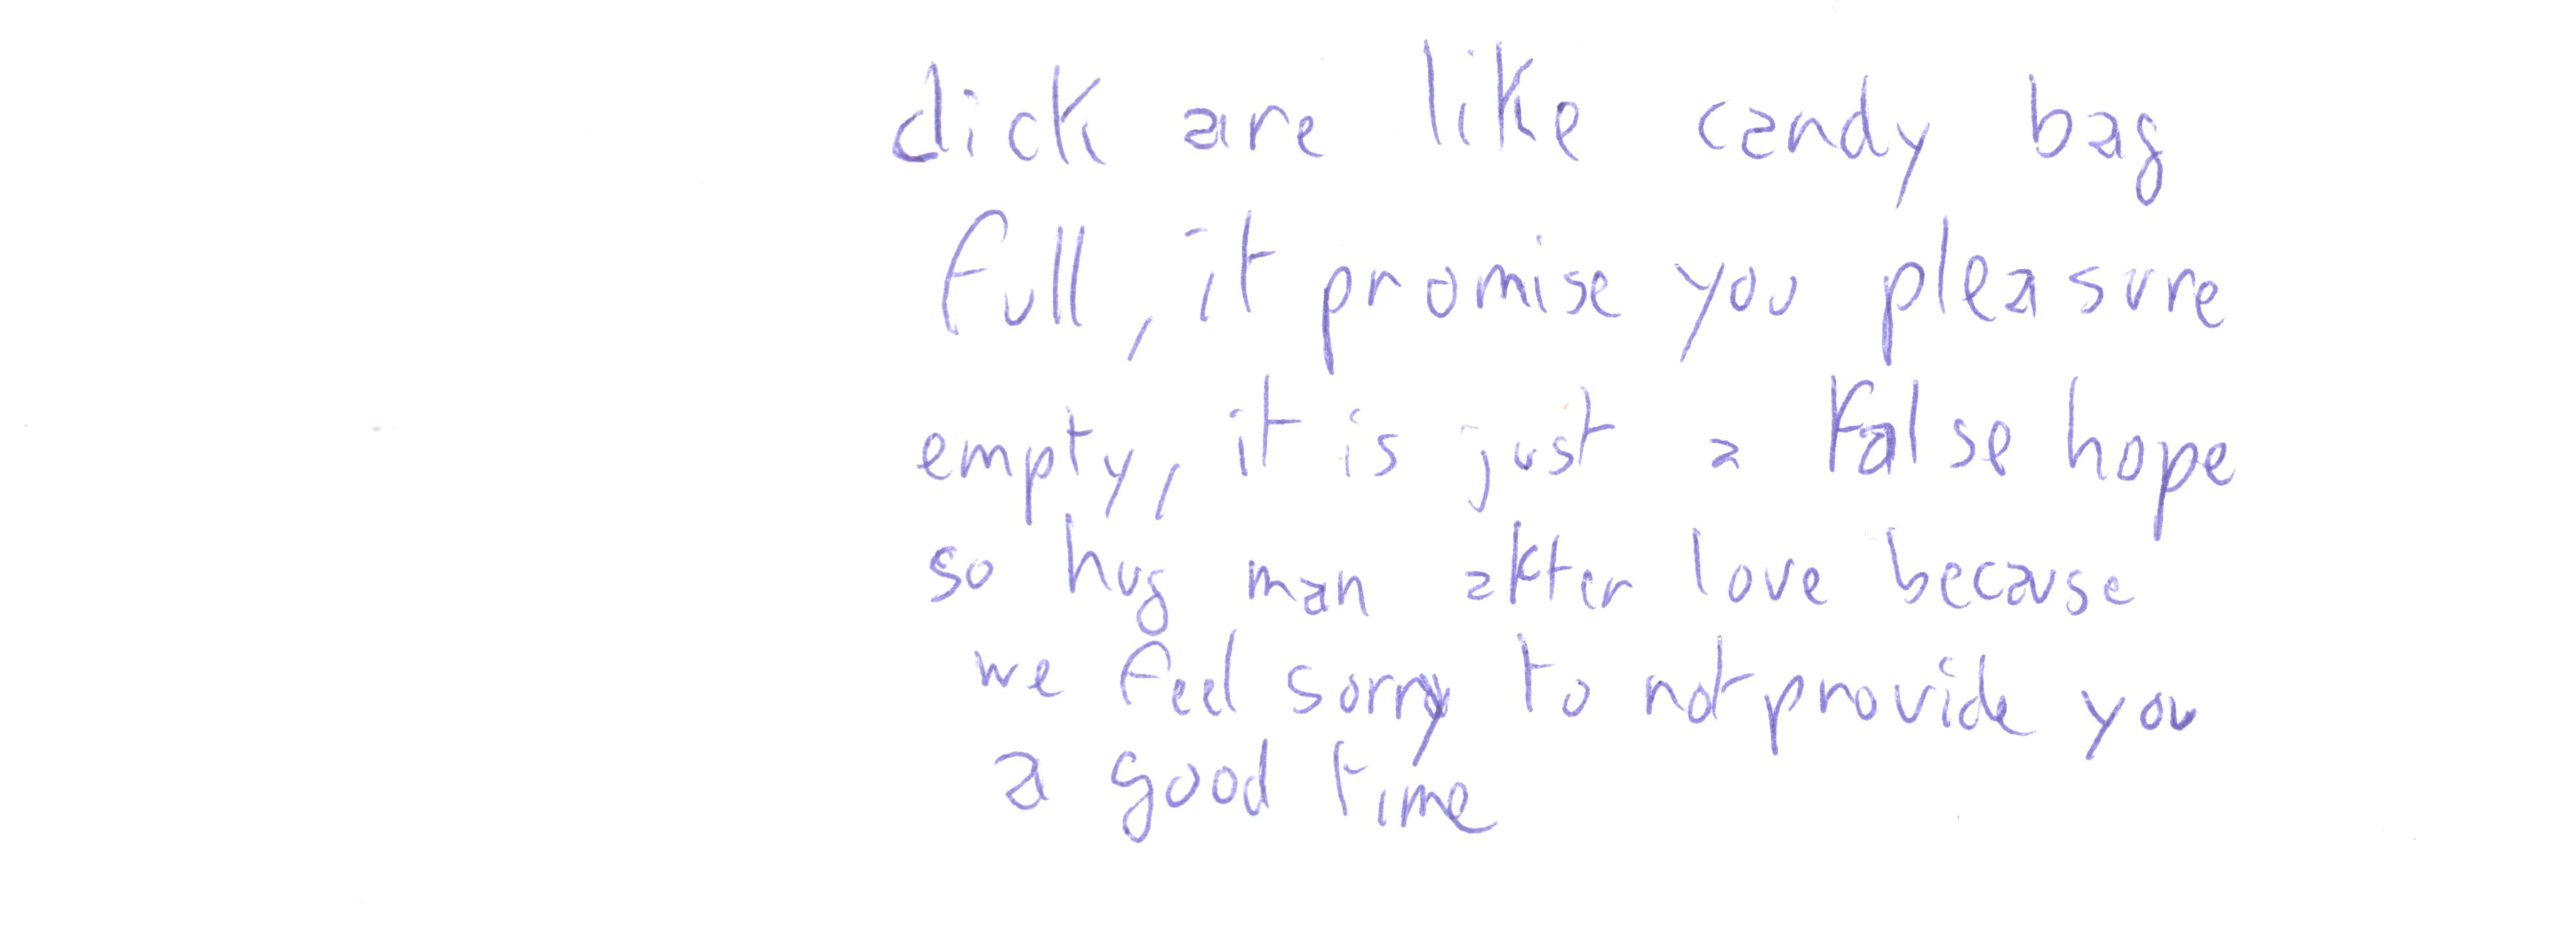 dick are like candy bag
full, it promise you pleasure
empty, it is just a false hope
so hug man after love because
we feel sorry to not provide you
a good time